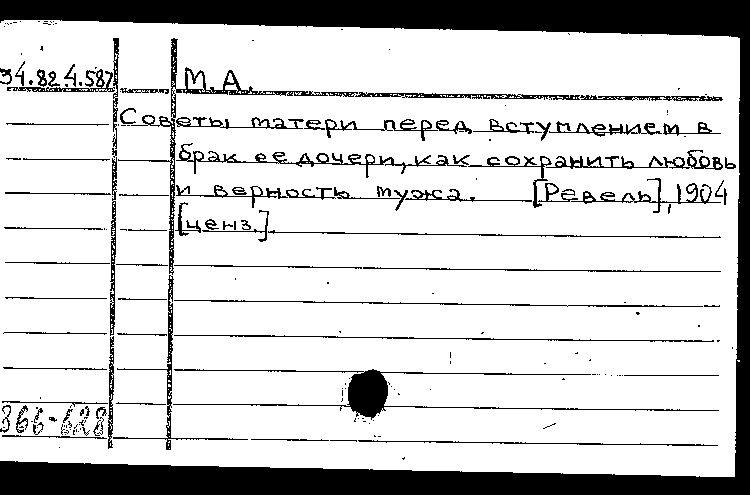 34.82.4.587 М.А.
Советы матери перед вступлением в
брак ее дочери, как сохранить любовь
и верность мужа. [Ревель], 1904
[ценз.].
366-628